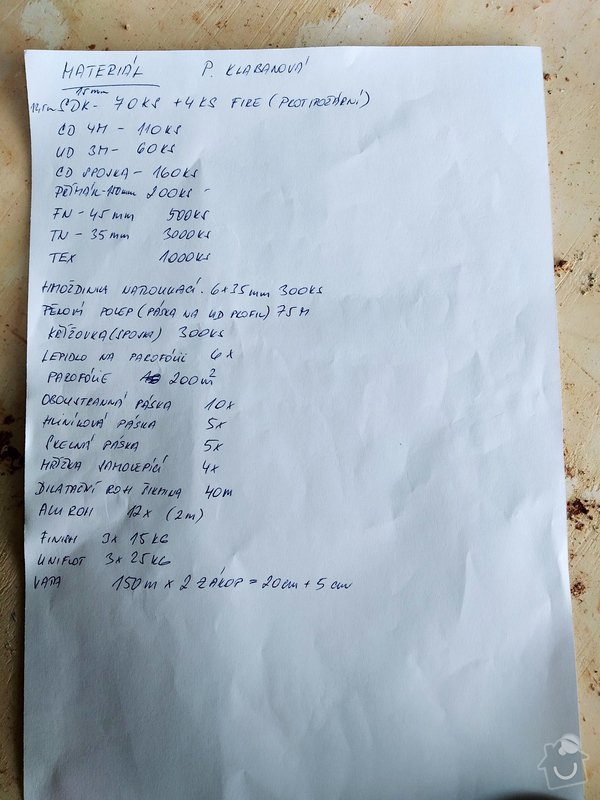 MATERIÁL P. KLABANOVÁ
15mm
12,5mm SDK - 70KS + 4KS FIRE (PROTIPOŽÁRNÍ)
CD 4M - 110KS
UD 3M - 60KS
CD SPOJKA - 160KS
PŘÍMÁK - 150mm 200KS
FN - 45mm 500KS
TN - 35mm 3000KS
TEX 1000KS
HMOŽDINKA NATLOUKACÍ 6×35mm 300KS
PĚNOVÝ POLEP (PÁSKA NA UD PROFIL) 75M
KŘÍŽOVKA (SPOJKA) 300KS
LEPIDLO NA PAROFÓLIE 6x
PAROFÓLIE 200m²
OBOUSTRANNÁ PÁSKA 10x
HLINÍKOVÁ PÁSKA 5x
SKELNÁ PÁSKA 5x
MŘÍŽKA SAMOLEPÍCÍ 4x
DILATAČNÍ ROH ŠIKMINA 40m
ALU ROH 12x (2m)
FINISH 3x 15KG
UNIFLOT 3x 25KG
VATA 150m x 2 ZÁKOP = 20cm + 5cm